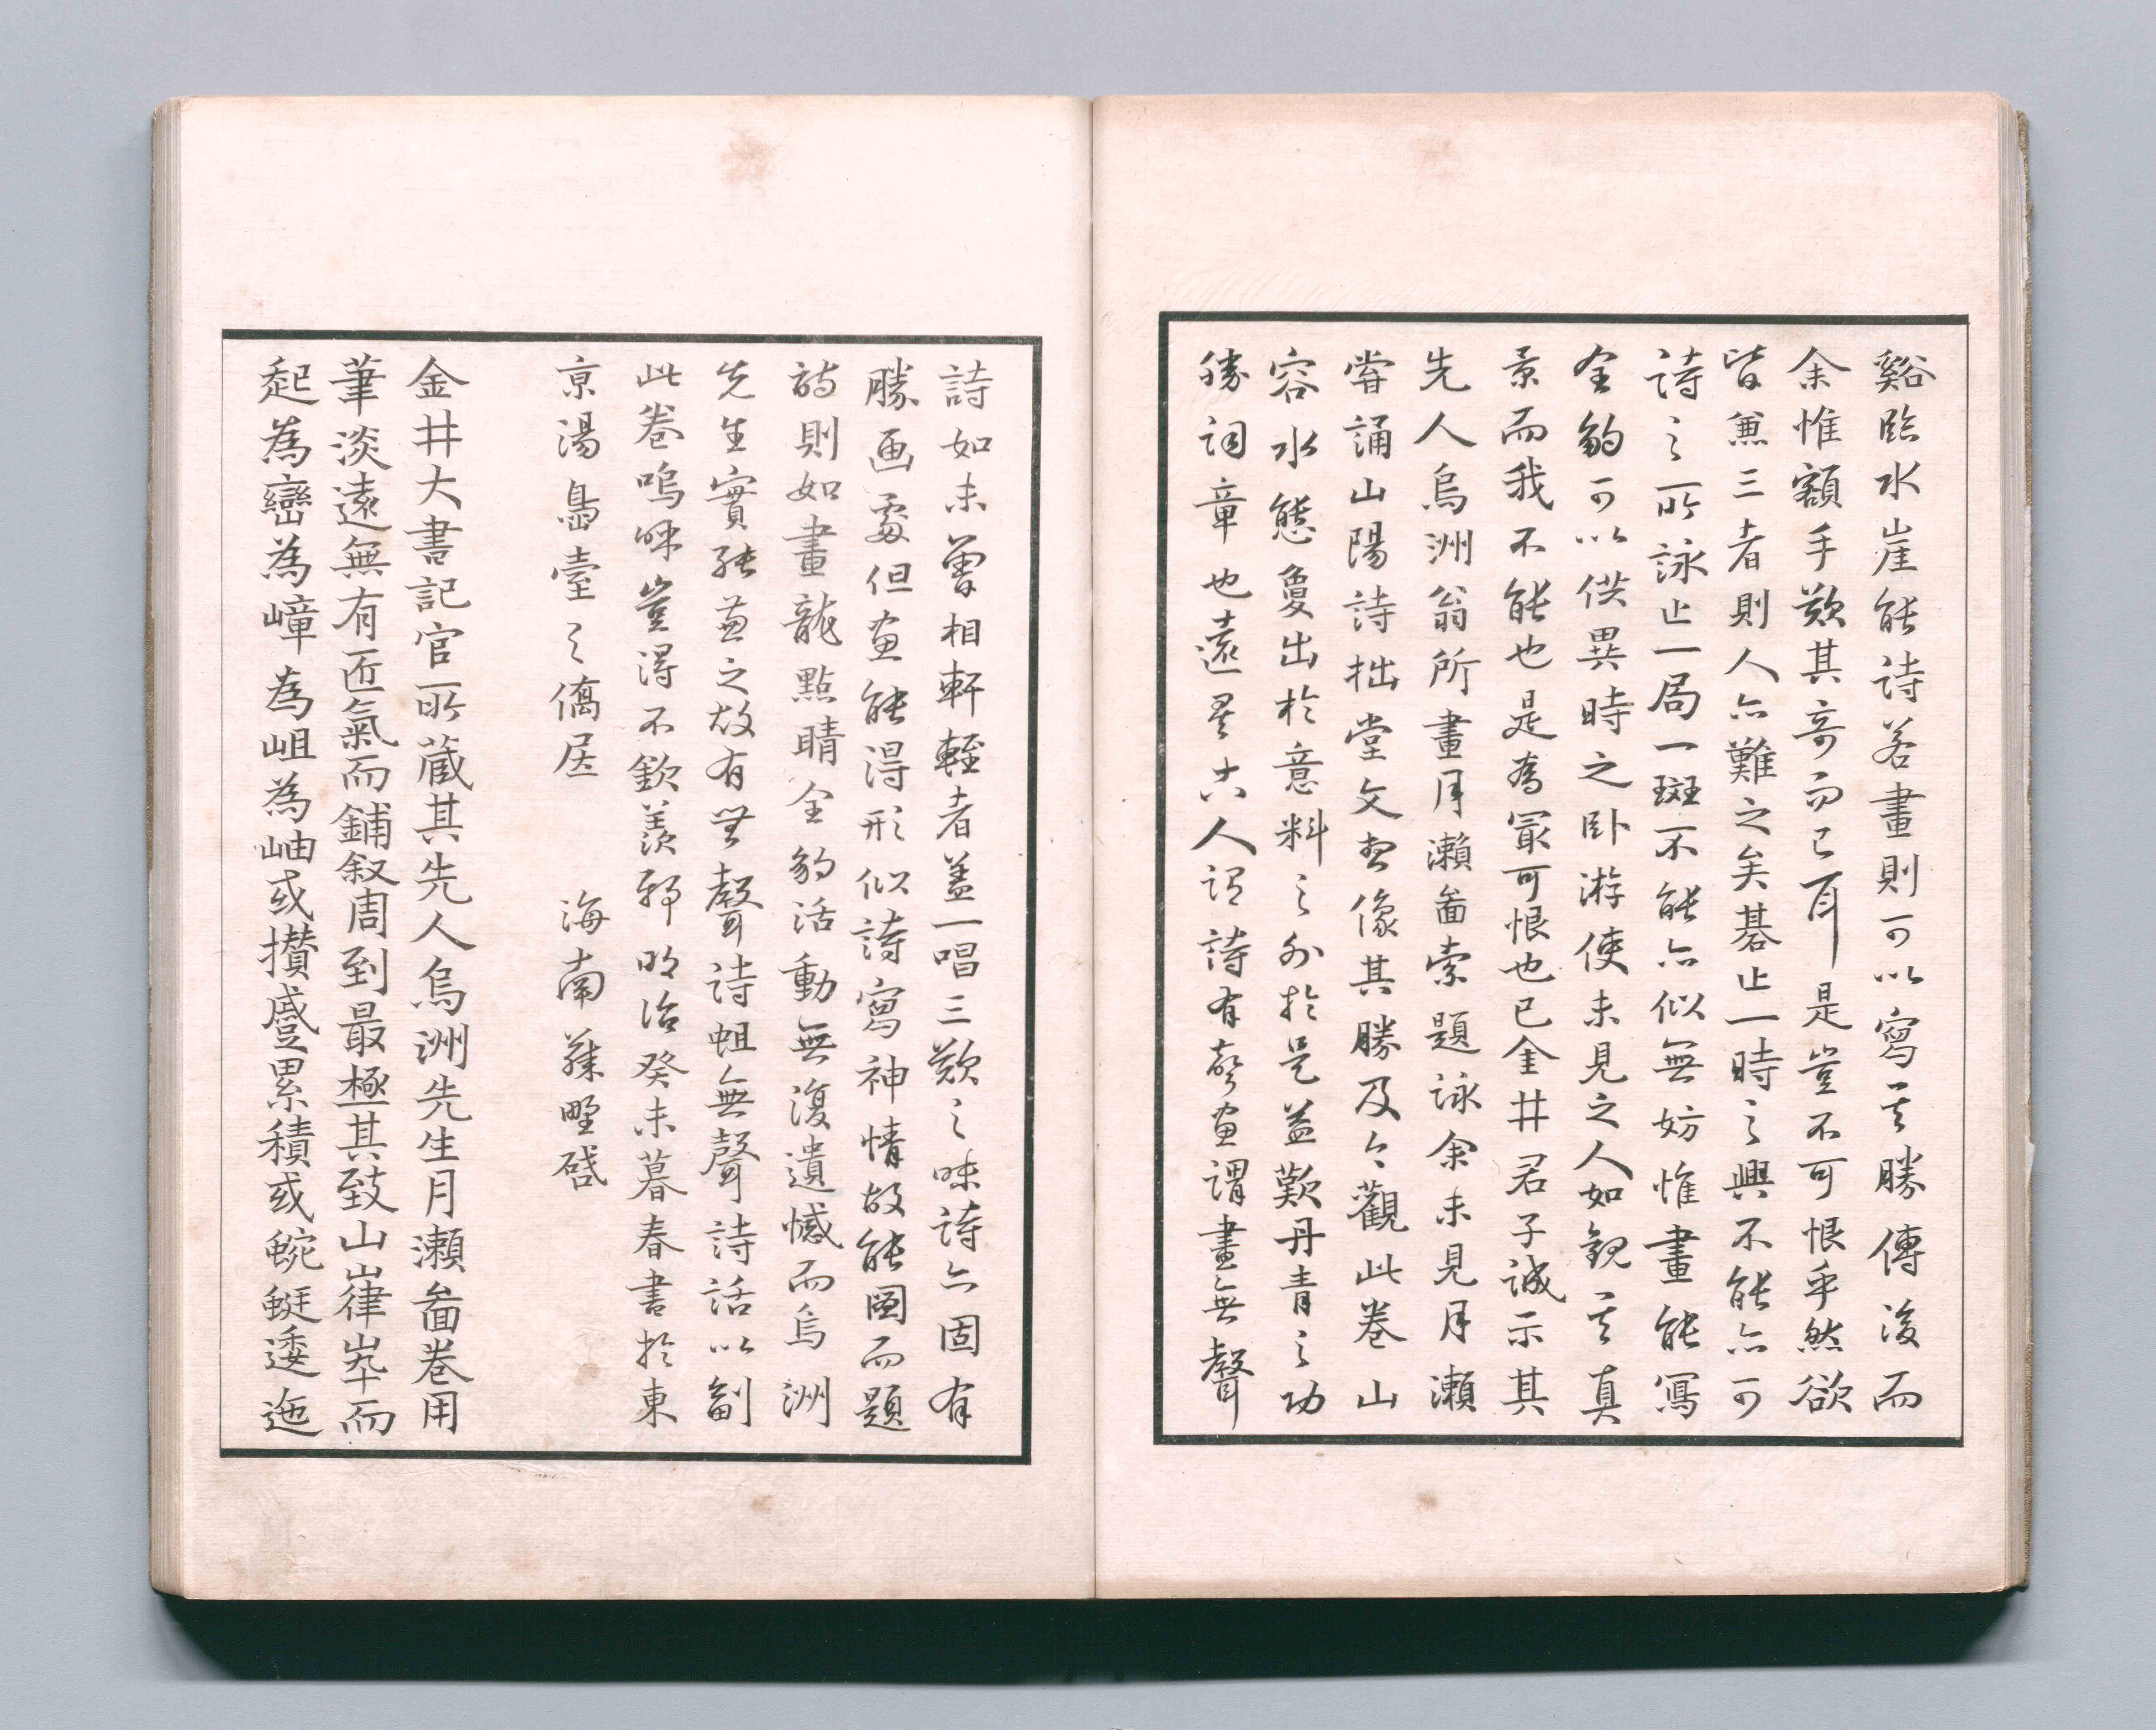 谿臨水崖能詩若畫則可以寫其勝傳後而
余惟額手歎其奇而已耳是豈不可恨乎然欲
皆兼三者則人亦難之矣碁止一時之興不能亦可
詩之所詠止一局一斑不能亦似無妨惟畫能寫
全豹可以供異時之臥游使未見之人如観其真
景而我不能也是為冣可恨也已金井君子誠示其
先人烏洲翁所畫月瀬啚索題詠余未見月瀬
嘗誦山陽詩拙堂文想像其勝及今觀此卷山
容水態夐出於意料之外於是益歎丹青之功
勝詞章也遠矣古人謂詩有聲画謂畫無聲
詩如未曽相軒輊者盖一唱三歎之味詩亦固有
勝画處但画能得形似詩寫神情故能圖而題
詩則如畫龍點睛全豹活動無復遺憾而烏洲
先生實能兼之故有無聲詩蛆無聲詩話以副
此卷嗚呼豈得不欽羨耶明治癸未暮春書於東
京湯島臺之僑居 海南藤野啓
金井大書記官所蔵其先人烏洲先生月瀬啚卷用
筆淡遠無有匠氣而鋪叙周到最極其致山嵂崒而
起為巒為嶂為岨為岫或攢蹙累積或蜿蜒逶迤